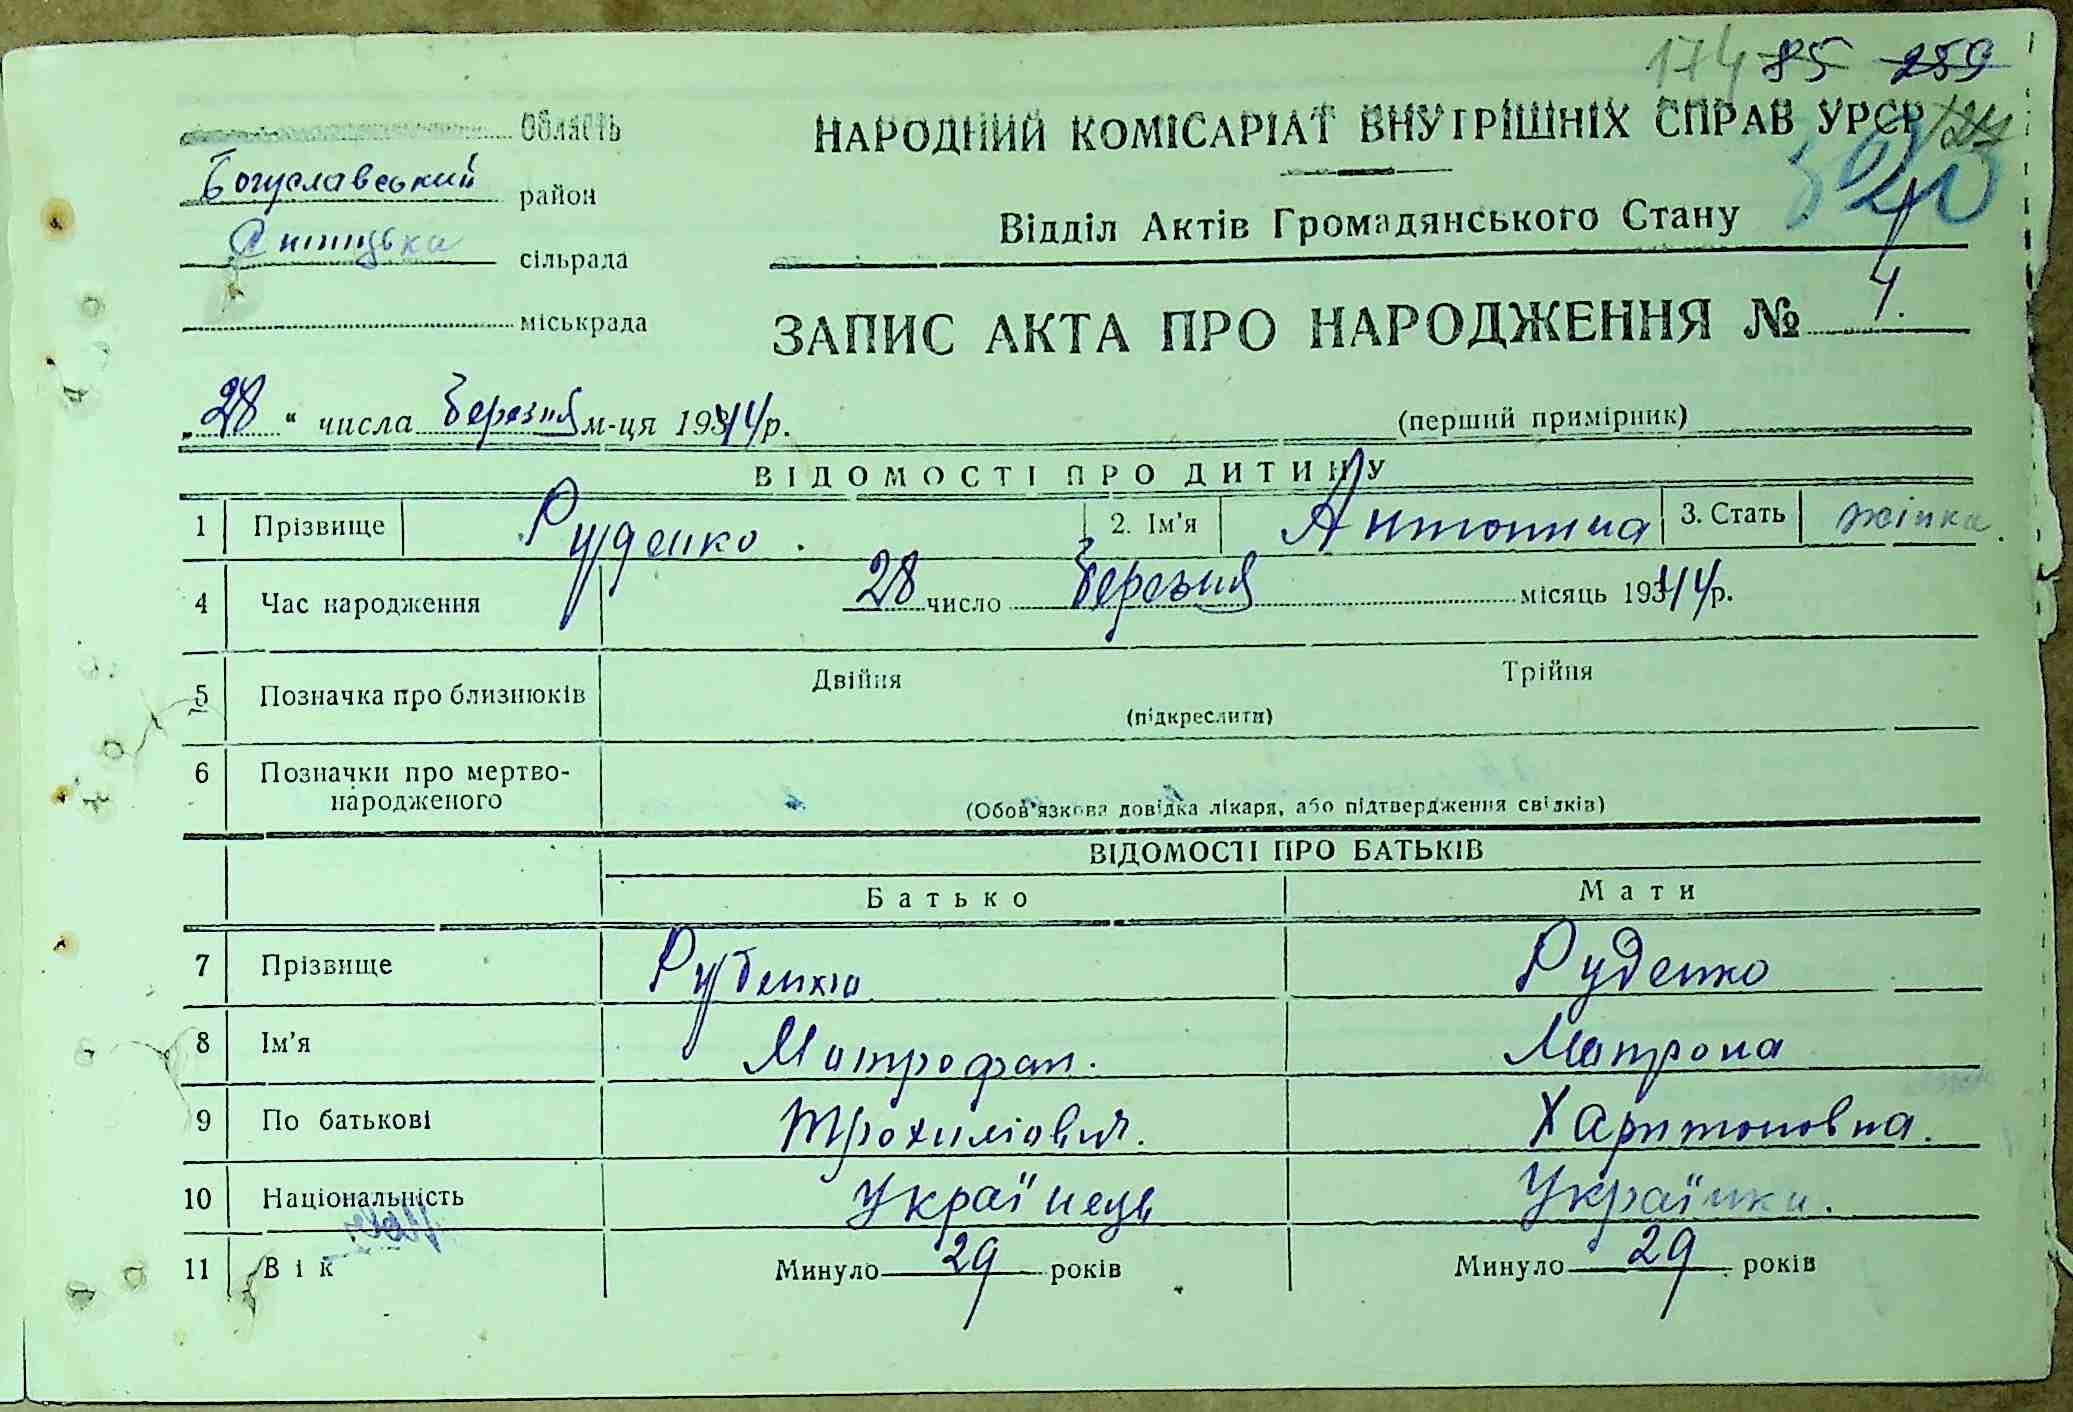 174 85 259
Область
НАРОДНИЙ КОМІСАРІАТ ВНУТРІШНІХ СПРАВ УРСР
Богуславський район
Відділ Актів Громадянського Стану
сільрада
міськрада
ЗАПИС АКТА ПРО НАРОДЖЕННЯ № 4.
„28“ числа Березня м-ця 1944 р.
(перший примірник)
ВІДОМОСТІ ПРО ДИТИНУ
1 Прізвище Руденко. 2. Ім'я Антонина 3. Стать жінка.
4 Час народження 28 число Березня місяць 1944 р.
5 Позначка про близнюків Двійня Трійня
(підкреслити)
6 Позначки про мертво-
народженого
(Обов'язкова довідка лікаря, або підтвердження свідків)
ВІДОМОСТІ ПРО БАТЬКІВ
Батько Мати
7 Прізвище Руденко Руденко
8 Ім'я Митрофан. Мотрона
9 По батькові Трохимович. Харитоновна.
10 Національність Українець Українка.
11 Вік Минуло 29 років Минуло 29 років